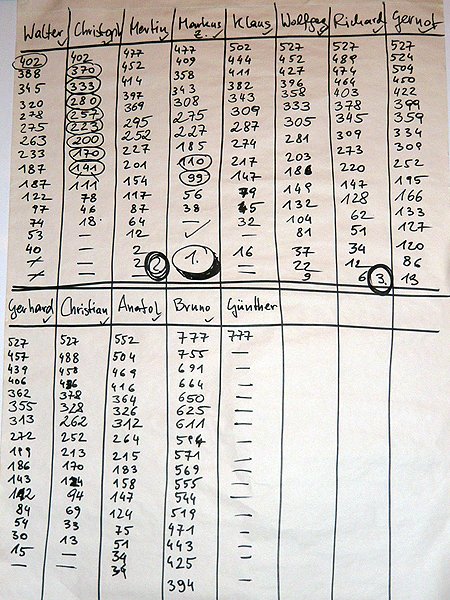 Walter Christoph Martin Markus Z. Klaus Wolfgang Richard Gernot
402 402 477 477 502 527 527 527
388 370 452 409 444 452 489 524
345 333 414 358 411 427 474 504
320 280 397 343 382 396 464 450
278 257 369 308 343 358 403 422
275 223 295 275 309 333 378 399
263 200 252 227 287 305 345 359
233 170 227 185 274 281 309 334
187 141 201 110 217 203 273 309
187 111 154 99 147 186 220 252
122 78 117 56 79 149 147 195
97 46 87 38 45 132 128 166
74 18 64 — 32 104 62 133
53 — 12 ✓ — 81 51 127
40 — 2 1. 16 37 34 120
— — 2 2. — 22 12 86
— — — — 9 6 3. 13
Gerhard Christian Anatol Bruno Günther
527 527 552 777 777
457 488 504 755 —
439 458 469 691 —
406 416 664 —
362 378 364 650 —
355 328 326 625 —
313 262 312 611 —
272 252 264 594 —
199 213 215 571 —
186 170 183 569 —
143 124 158 555 —
112 94 147 544 —
84 69 124 519 —
54 33 75 471 —
30 13 51 443 —
15 — 34 425 —
— — 34 394 —